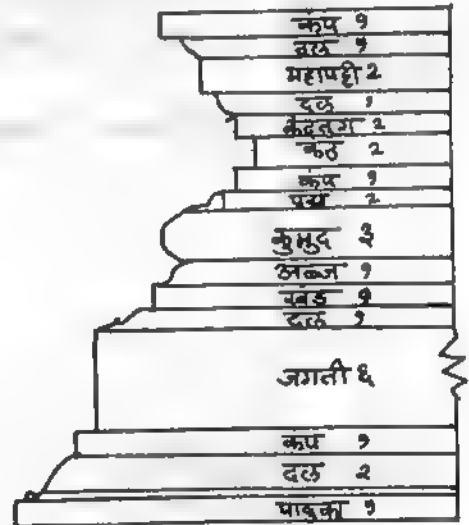 कंप १
दल १
महापट्टी 2
दल १
कंठ 2
कंप १
पद्म 2
कुमुद ३
अब्ज १
खंड १
दल १
जगती ६
कंप १
दल २
पादुका १